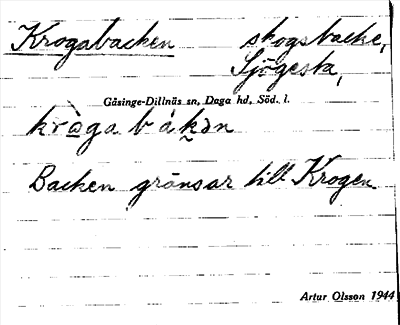 Krogabacken skogsbacke,
Sjögesta,
Gåsinge-Dillnäs sn, Daga hd, Söd. l.
krò̱ga bákən
Backen gränsar till Krogen.
Artur Olsson 1944